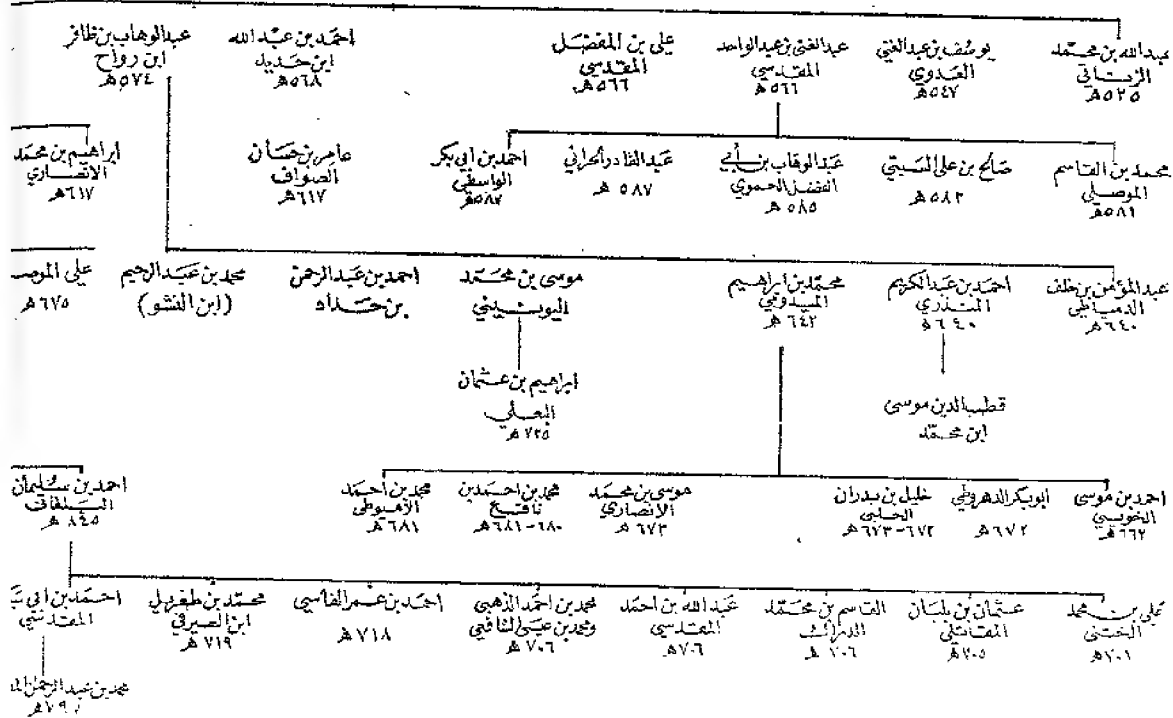 عبدالله بن محمّد
الزناتي
٥٢٥ھ
يوسف بن عبدالغني
العَدَوي
٥٤٧ھ
عبدالغني بن عبدالواحد
المقدسي
٥٦٦ھ
علي بن المفضل
المقدسي
٥٦٦ھ
احمد بن عبدالله
ابن حديد
٥٦٨ھ
عبدالوهاب بن ظافر
ابن رواح
٥٧٤ھ
محمد بن القاسم
الموصلي
٥٨١ھ
صَالح بن علي السبتي
٥٨٢ھ
عَبدالوهّاب بن أبي
الفضل الحموي
٥٨٥ھ
عَبدالقادر الحراني
٥٨٧ھ
احمد بن ابي بكر
الواسطي
٥٨٧ھ
عامر بن حسّان
الصواف
٦١٧ھ
ابراهيم بن محمد
الانصاري
٦١٧ھ
عبدالمؤمن بن خلف
الدمياطي
٦٤٠ھ
احمد بن عَبدالكريم
المنذري
٦٤٠ھ
محمّد بن ابراهيم
الميدومي
٦٤٢ھ
موسى بن محمّد
اليونيني
احمد بن عَبدالرحمن
بن حداد
محمد بن عَبدالرحيم
(ابن النشو)
علي الموص
٦٧٥ھ
ابراهيم بن عثمان
البعلي
٧٢٥ھ
قطب الدين موسى
ابن محمّد
احمد بن موسى
٦٦٢ھ
ابوبكر الدهروطي
٦٧٢ھ
خليل بن بدران
الحلبي
٦٧٢-٦٧٣ھ
موسى بن محمّد
الانصاري
٦٧٣ھ
محمد بن احمد بن
٦٨٠-٦٨١ھ
محمد بن احمد
الاميوطي
٦٨١ھ
احمد بن سليمان
٨٤٥ھ
علي بن محمد
الختني
٧٠١ھ
عثمان بن بلبان
المقاتلي
٧٠٥ھ
القاسم بن محمّد
٧٠٦ھ
عَبدالله بن احمد
المقدسي
٧٠٦ھ
محمد بن احمد الذهبي
ومحمد بن عيسى الشافعي
٧٠٦ھ
احمد بن عمر الفاسي
٧١٨ھ
محمّد بن طغريل
ابن الصيرفي
٧١٩ھ
احمد بن ابي
المقدسي
محمد بن عبدالرحمن